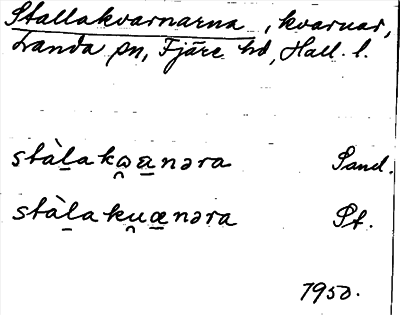 Stallakvarnarna, kvarnar,
Landa sn, Fjäre hd, Hall. l.
stàl̠akω̯a̠nəra Sand.
stàl̠aku̯æ̠nəra Pt.
1950.